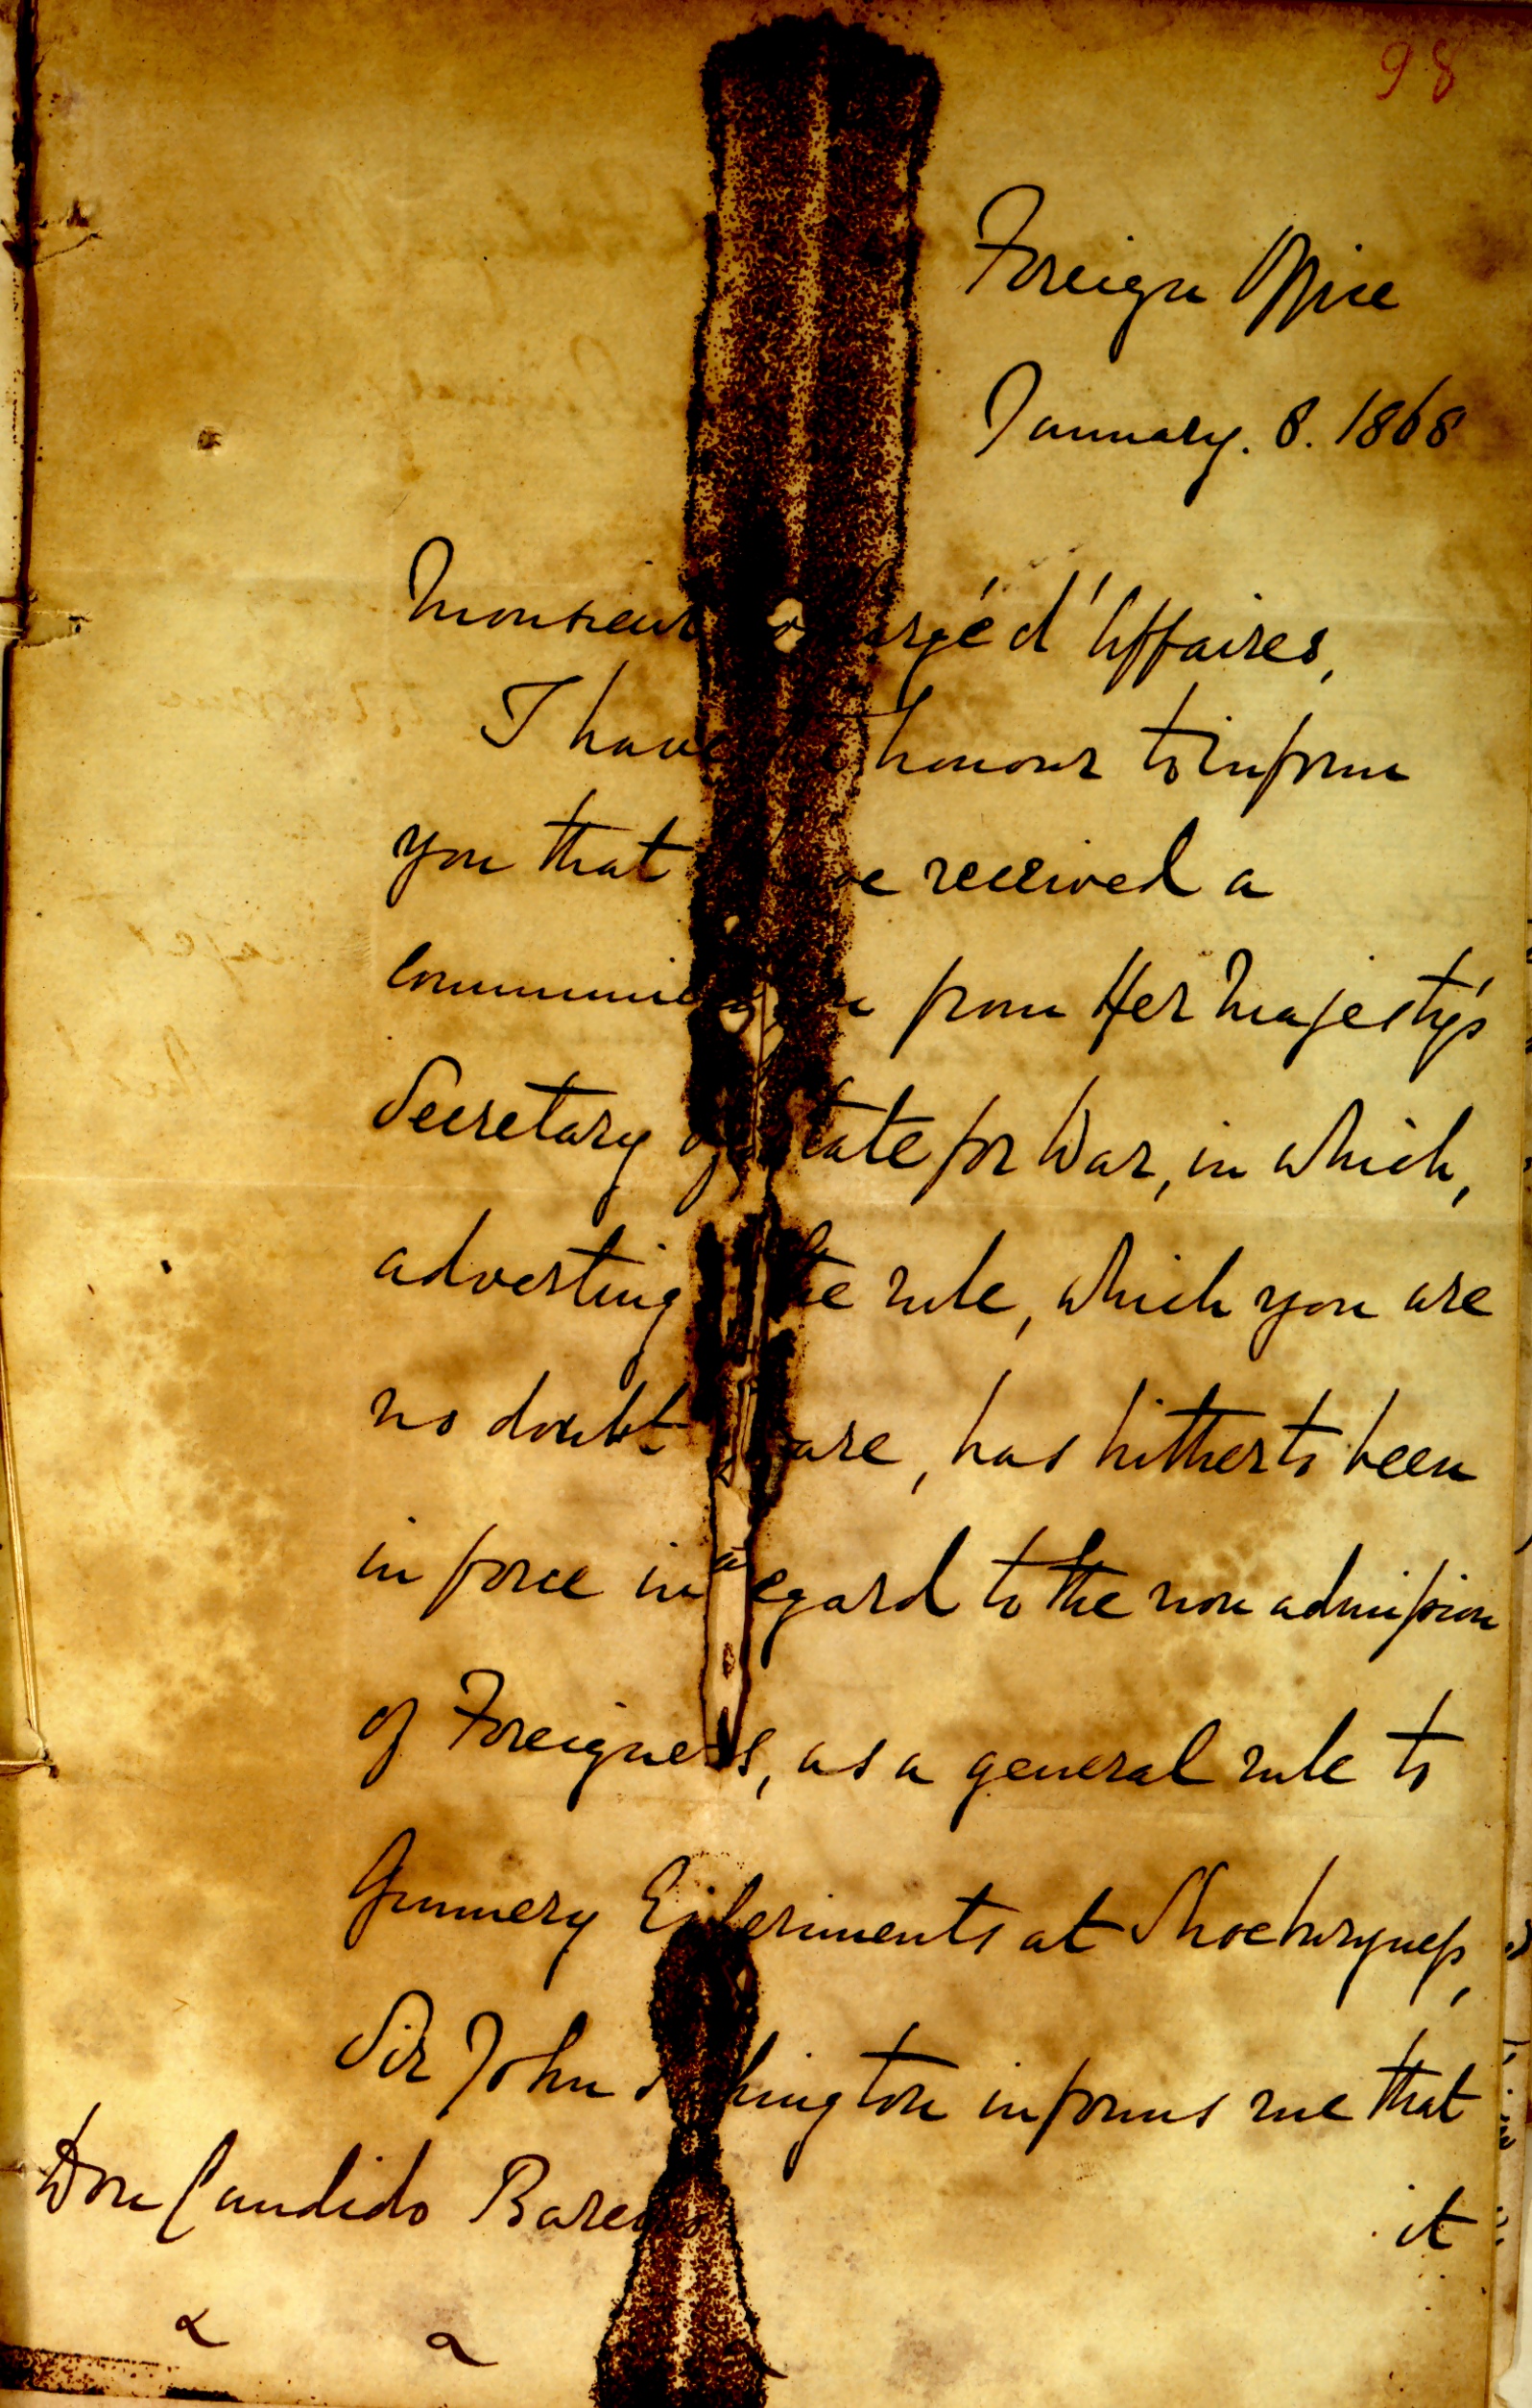 98
Foreign Office
January. 8. 1868
Monsieur d'Affaires,
I have honour to inform
you that received a
from Her Majesty's
Secretary of State for War, in which,
adverting the rule, which you are
no doubt has hitherto been
in force in regard to the non admission
of Foreigners, as a general rule to
Gunnery Experiments at Shoeburyness,
Sir John informs me that
it
Don Candido